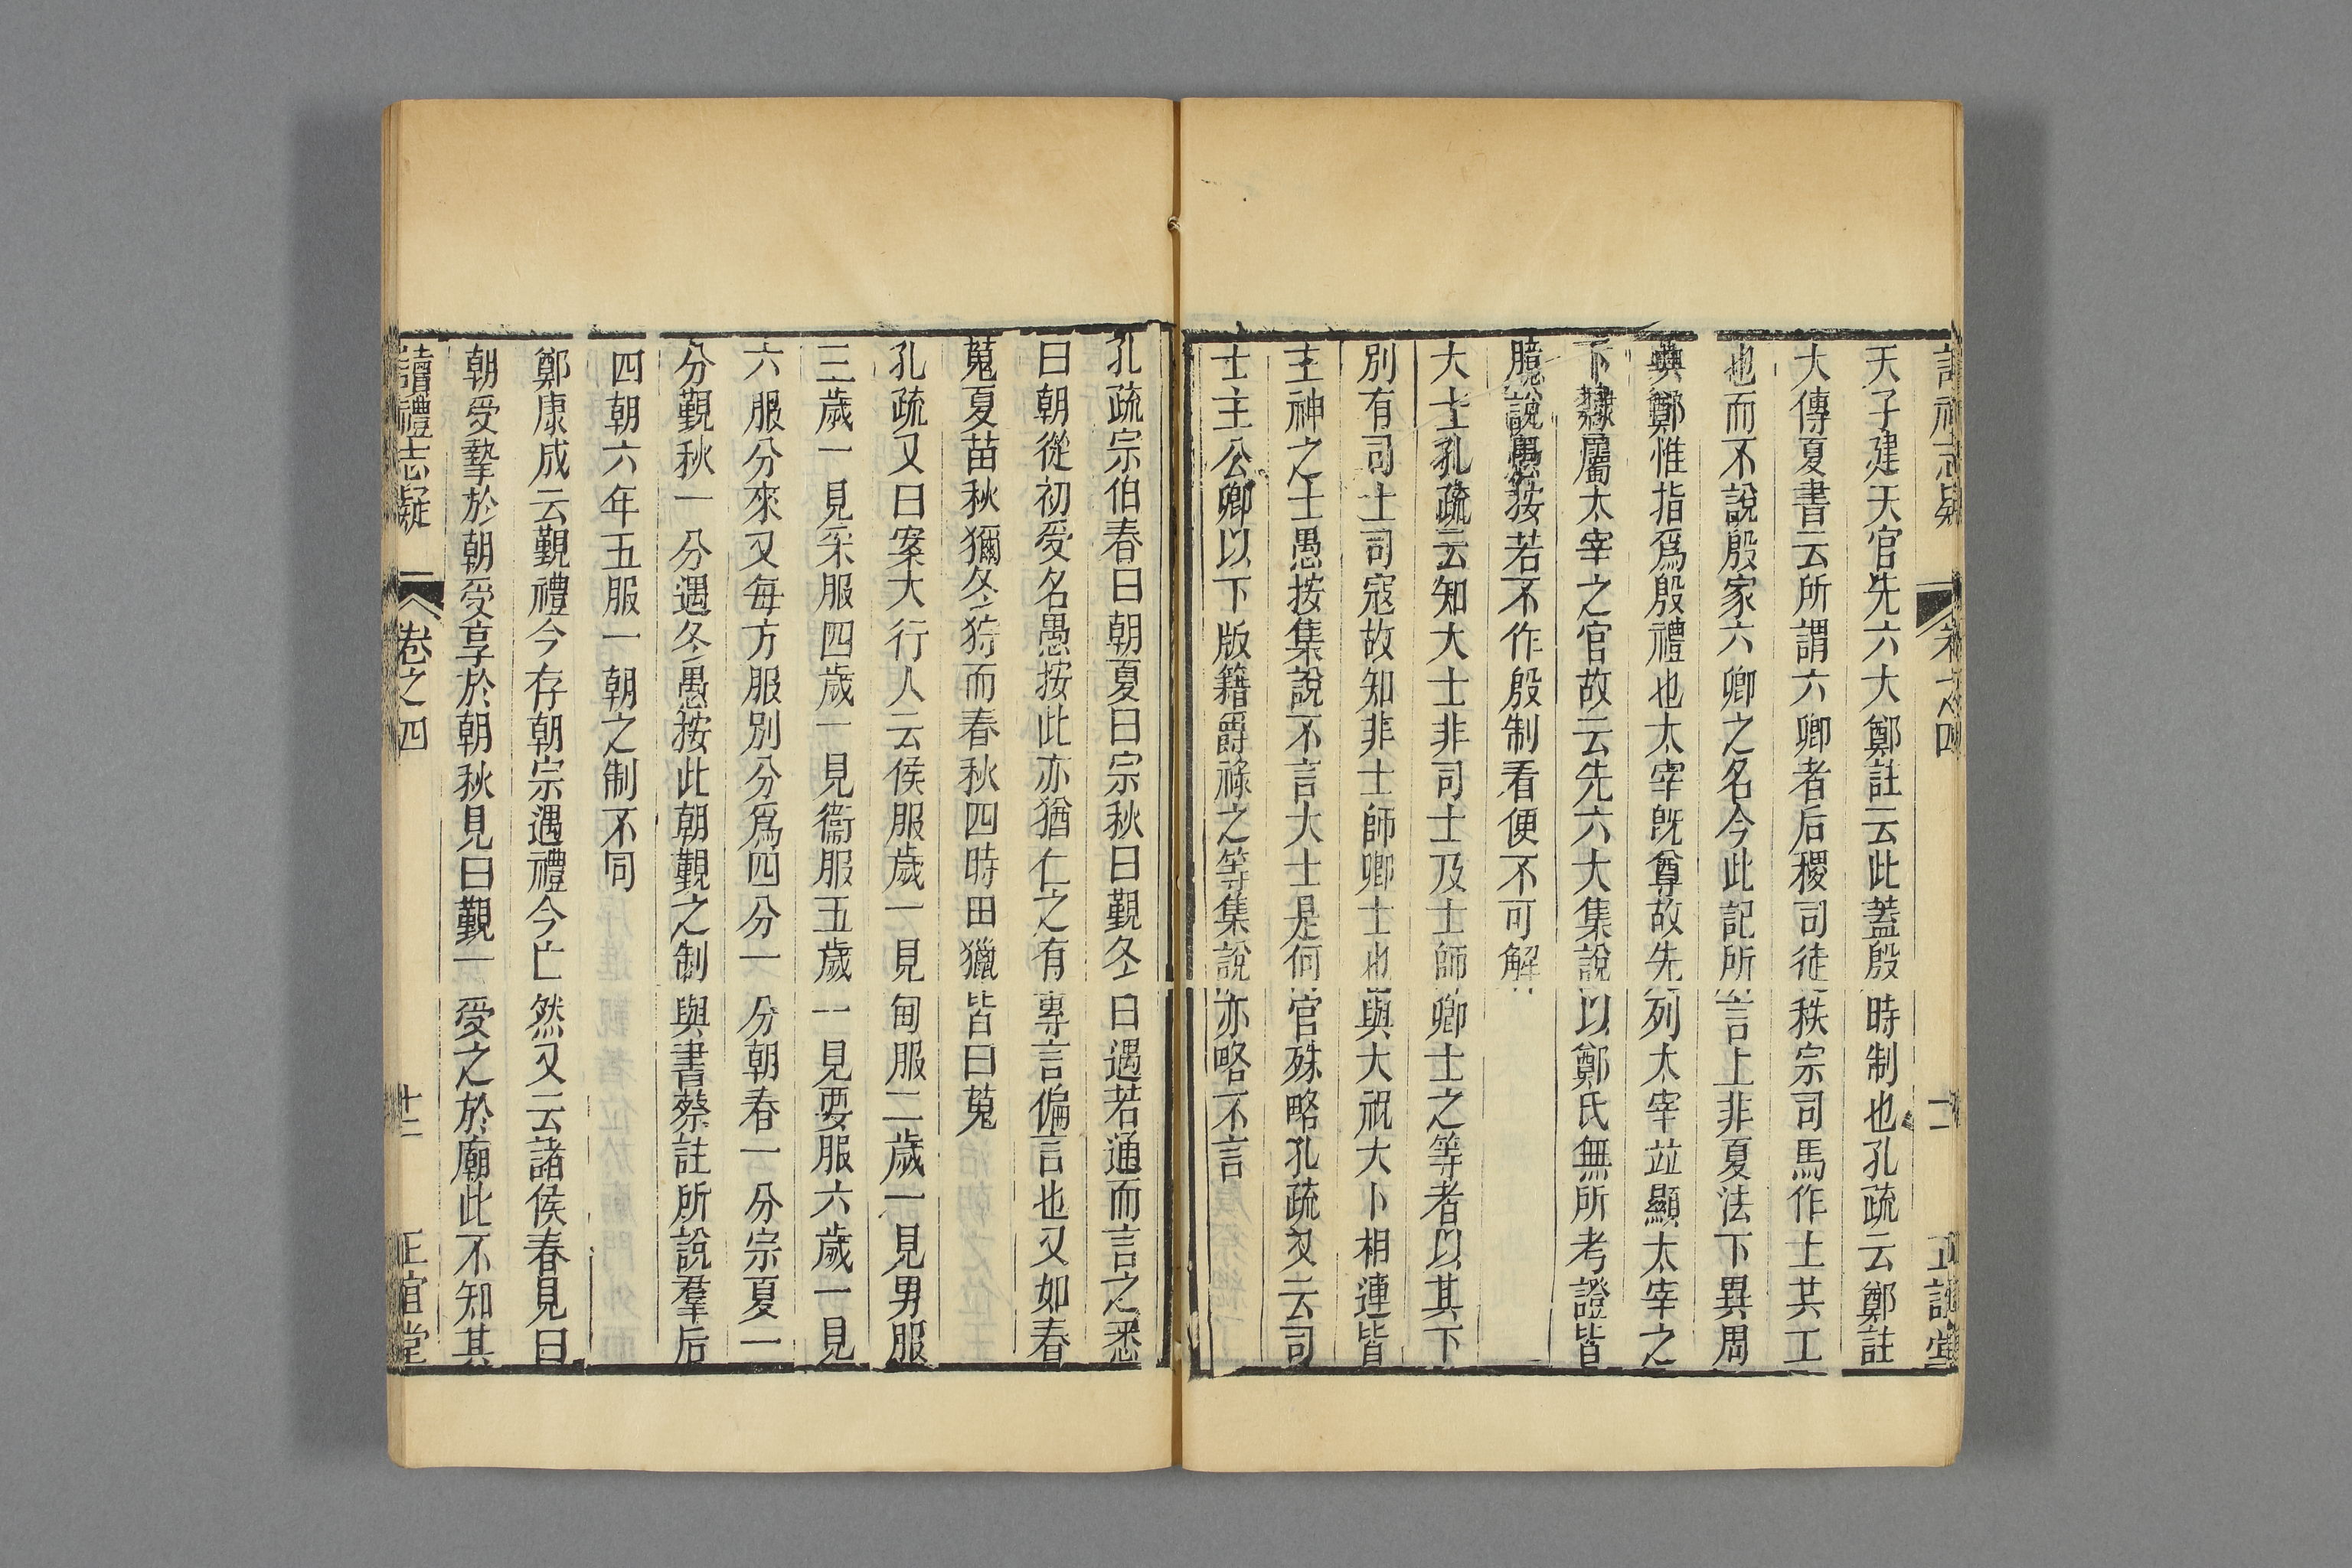 天子建天官先六大鄭註云此蓋殷時制也孔疏云鄭註
大傳夏書云所謂六卿者后稷司徒秩宗司馬作士共工
也而不說殷家六卿之名今此記所言上非夏法下異周
典鄭惟指爲殷禮也太宰旣尊故先列太宰竝顯太宰之
下隸屬太宰之官故云先六大集說以鄭氏無所考證皆
臆說愚按若不作殷制看便不可解
大士孔疏云知大士非司士及士師卿士之等者以其下
別有司士司寇故知非士師卿士也與大祝大卜相連皆
主神之士愚按集說不言大士是何官殊略孔疏又云司
士主公卿以下版籍爵祿之等集說亦略不言
孔疏宗伯春曰朝夏曰宗秋曰覲冬曰遇若通而言之悉
曰朝從初受名愚按此亦猶仁之有專言偏言也又如春
蒐夏苗秋獮冬狩而春秋四時田獵皆曰蒐
孔疏又曰案大行人云侯服歲一見甸服二歲一見男服
三歲一見采服四歲一見衞服五歲一見要服六歲一見
六服分來又每方服別分爲四分一分朝春一分宗夏一
分覲秋一分遇冬愚按此朝覲之制與書蔡註所說羣后
四朝六年五服一朝之制不同
鄭康成云覲禮今存朝宗遇禮今亡然又云諸侯春見曰
朝受摯於朝受享於朝秋見曰覲一受之於廟此不知其
讀禮志疑 卷之四 十二 正誼堂